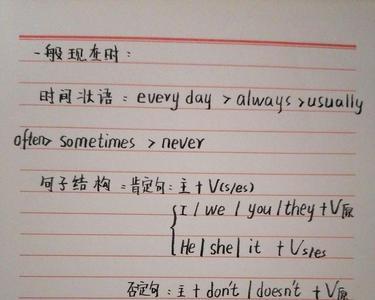 一般现在时:
时间状语: every day > always > usually
often> sometimes > never
句子结构: 肯定句: 主 + V(s/es)
I / we / you / they + V原
He / she / it + Vs/es
否定句: 主 + don't / doesn't + V原